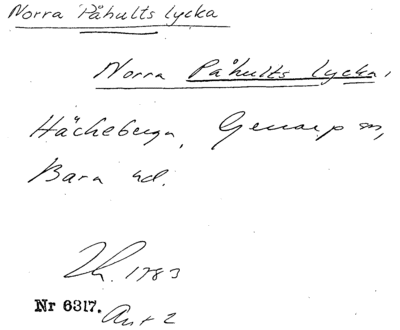 Norra Påhults lycka
Norra Påhults lycka,
Häckeberga, Genarp sn,
Bara hd.
Lh. 1783
Nr 6317. Avt 2